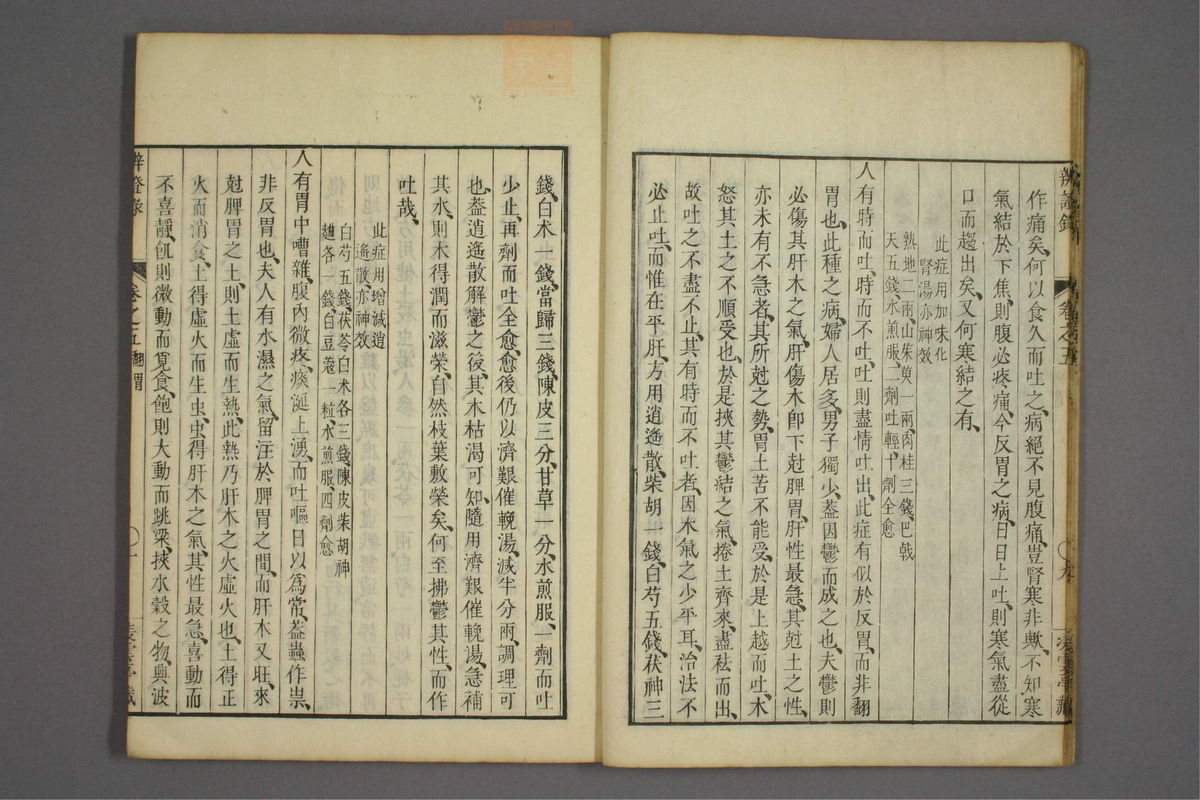 作痛矣、何以食久而吐之、病絕不見腹痛、豈腎寒非歟、不知寒
氣結於下焦、則腹必疼痛、今反胃之病、日日上吐、則寒氣盡從
口而趨出矣、又何寒結之有、
此症用加味化
腎湯亦神效
熟地二兩、山茱萸一兩、肉桂三錢、巴戟
天五錢水煎服二劑吐輕十劑全愈
人有時而吐、時而不吐、吐則盡情吐出、此症有似於反胃、而非翻
胃也、此種之病、婦人居多、男子獨少、蓋因鬱而成之也、夫鬱則
必傷其肝木之氣、肝傷木卽下尅脾胃、肝性最急、其尅土之性、
亦未有不急者、其所尅之勢、胃土苦不能受、於是上越而吐、木
怒其土之不順受也、於是挾其鬱結之氣、捲土齊來、盡祛而出、
故吐之不盡不止、其有時而不吐者、因木氣之少平耳、治法不
必止吐、而惟在平肝、方用逍遙散、柴胡一錢、白芍五錢、茯神三
辨證錄
卷之五
錢、白朮一錢、當歸三錢、陳皮三分、甘草一分、水煎服、一劑而吐
少止、再劑而吐全愈、愈後仍以濟艱催輓湯、減半分兩、調理可
也、蓋逍遙散解鬱之後、其木枯渴可知、隨用濟艱催輓湯、急補
其水、則木得潤而滋榮、自然枝葉敷榮矣、何至拂鬱其性、而作
吐哉、
此症用增減逍
遙散、亦神效
白芍五錢、茯苓白朮各三錢、陳皮柴胡神
麯各一錢、白豆蔻一粒、水煎服、四劑愈
人有胃中嘈雜、腹內微疼、痰涎上湧、而吐嘔日以為常、蓋蟲作祟、
非反胃也、夫人有水濕之氣、留注於脾胃之間、而肝木又旺、來
尅脾胃之土、則土虛而生熱、此熱乃肝木之火虛火也、土得正
火而消食、土得虛火而生虫、虫得肝木之氣、其性最急、喜動而
不喜靜、飢則微動而覓食、飽則大動而跳梁、挾水穀之物、興波
辨證錄
卷之五 翻胃